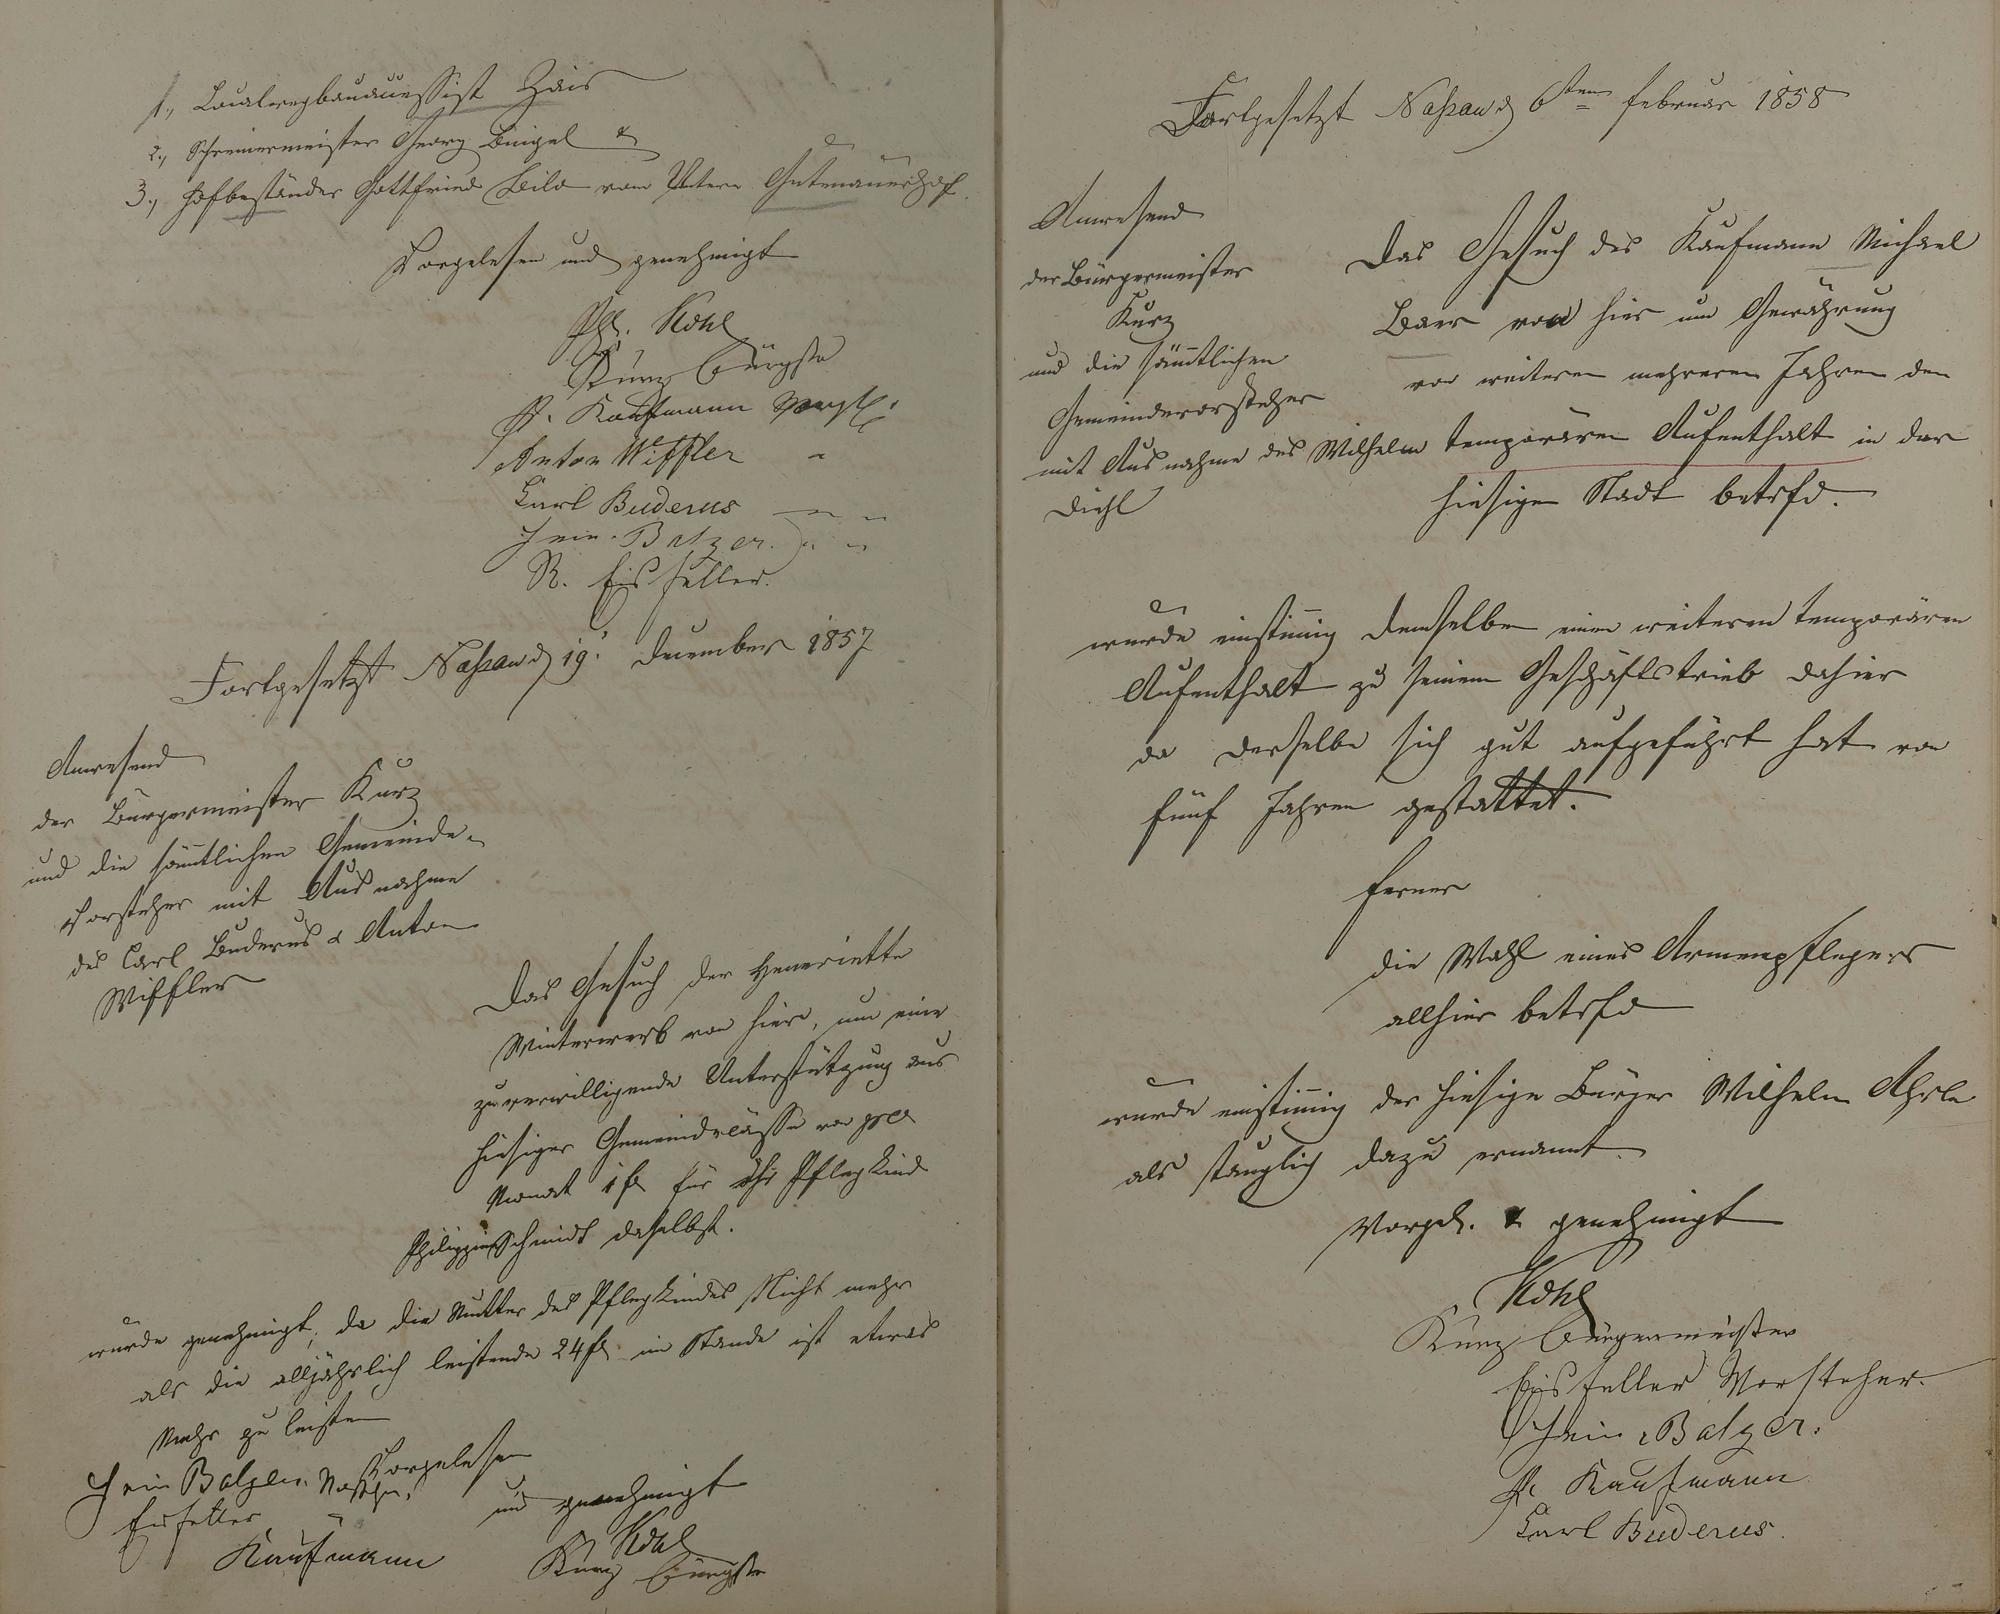 1., Localwegbauaccessist Zais
2., Schreinermeister Georg Bingel &
3., Hofbeständer Gottfried Beilo vom Untern Gutenauerhof.
Vorgelesen und genehmigt
Ph. Kohl
Kurz Bürgstr
P. Kaufmann
Anton Wiffler "
Carl Buderus " "
Hein. Balzer. " "
R. Eisfeller.
Fortgesetzt Nassau d 19. December 1857
Anwesend
der Bürgermeister Kurz
und die sämtlichen Gemeinde-
Vorsteher mit Ausnahme
des Carl Buderus & Anton
Wiffler
Das Gesuch der Henriette
Winterwerb von hier, um eine
zu verwilligende Unterstützung aus
hiesiger Gemeindecasse von pro
Monat 1 fl für ihr Pflegkind
Philippine Schmidt daselbst.
wurde genehmigt, da die Mutter des Pflegkindes Nicht mehr
als die alljährlich leistende 24 fl im Stande ist etwas
Mehr zu leisten
Vorgelesen
und genehmigt
Hein Balzer.
Eisfeller
Kaufmann
Kohl
Kurz Bürgstr
Fortgesetzt Nassau d 6ten Februar 1858
Anwesend
der Bürgermeister
Kurz
und die sämmtlichen
Gemeindevorsteher
mit Ausnahme des Wilhelm
Diehl
Das Gesuch des Kaufmann Michael
Baer von hier um Gewährung
von weiteren mehreren Jahren den
temporären Aufenthalt in der
hiesigen Stadt betrfd.
wurde einstimig demselben einen weiteren temporären
Aufenthalt zu seinem Geschäftstrieb dahier
da derselbe sich gut aufgeführt hat von
fünf Jahren gestattet.
ferner
die Wahl eines Armenpflegers
allhier betrfd
wurde einstimig der hiesige Bürger Wilhelm
als tauglich dazu ernannt.
Vorgel. & genehmigt
Kohl
Kurz Bürgermeister
Eisfeller Vorsteher.
Hein. Balzer.
P. Kaufmann
Carl Buderus.